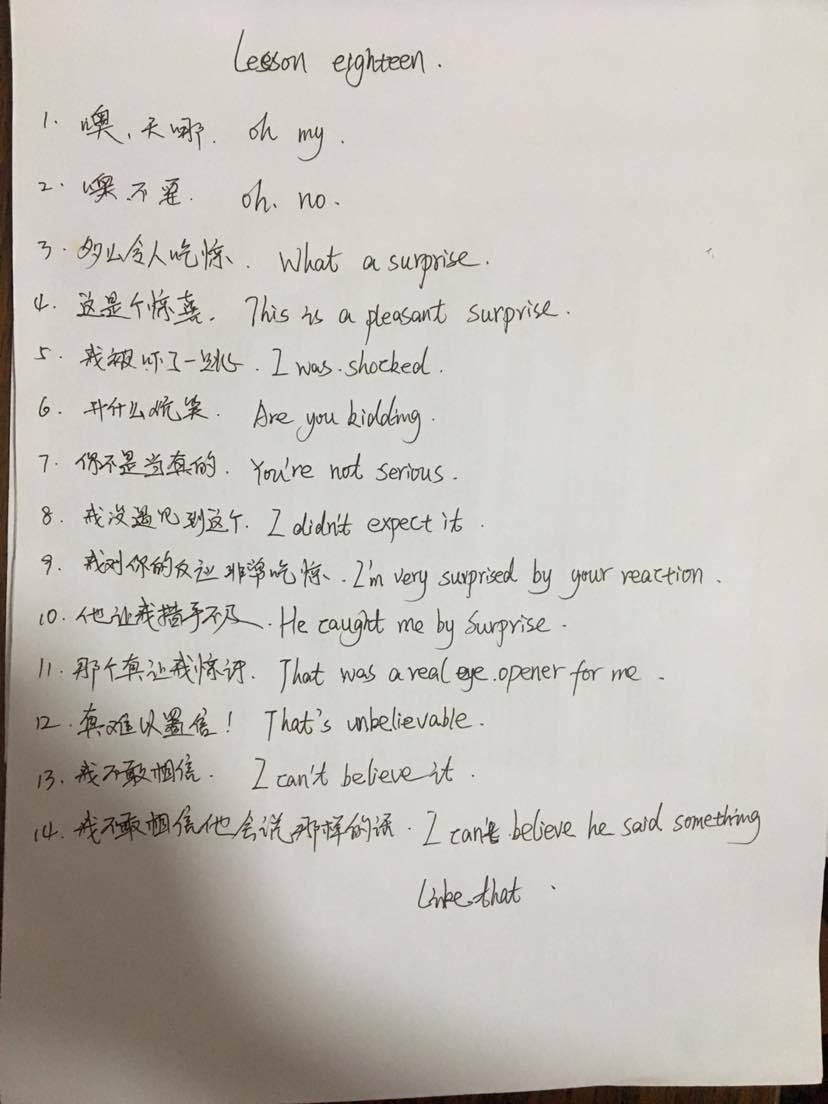 Lesson eighteen.
1. 噢、天哪. oh my.
2. 噢不要. oh. no.
3. 多么令人吃惊. What a surprise.
4. 这是个惊喜. This is a pleasant surprise.
5. 我被吓了一跳. I was shocked.
6. 开什么玩笑. Are you kidding.
7. 你不是当真的. You're not serious.
8. 我没遇见到这个. I didn't expect it.
9. 我对你的反应非常吃惊. I'm very surprised by your reaction.
10. 他让我措手不及. He caught me by Surprise.
11. 那个真让我惊讶. That was a real eye.opener for me.
12. 真难以置信! That's unbelievable.
13. 我不敢相信. I can't believe it.
14. 我不敢相信他会说那样的话. I can't believe he said something
Like that.